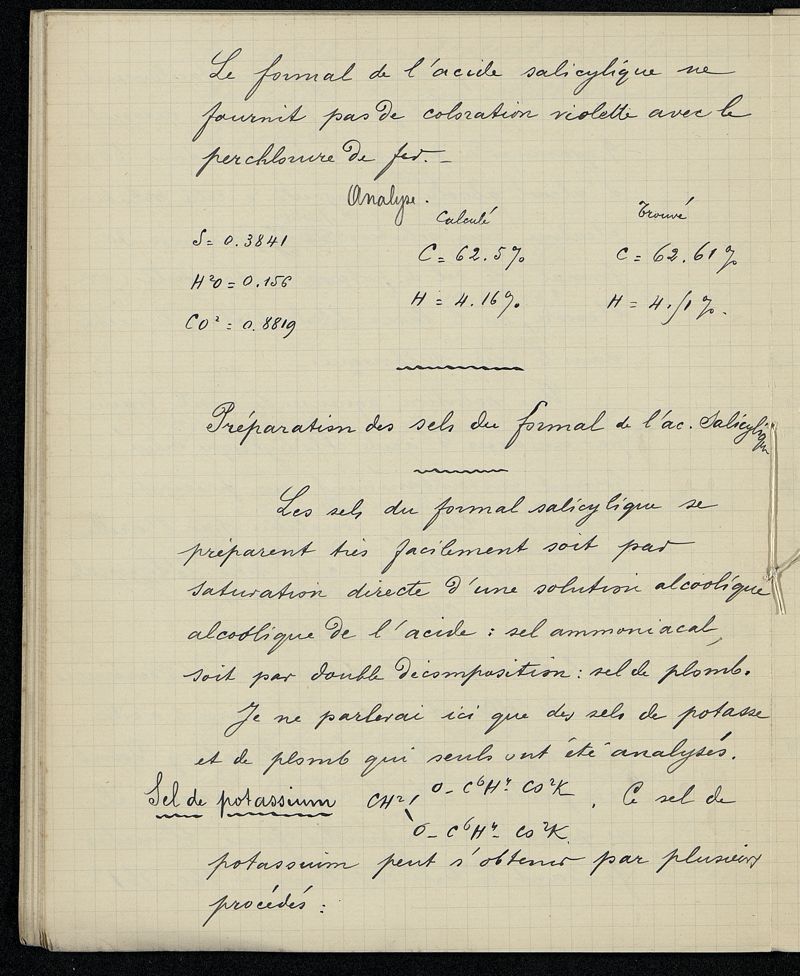 Le formal de l'acide salicylique ne
fournit pas de coloration violette avec le
perchlorure de fer. –
Analyse.
Calculé Trouvé
S = 0.3841
C = 62.5% C = 62.61%
H²O = 0.156
H = 4.16% H = 4.51%.
CO² = 0.8819
Préparation des sels du formal de l'ac. Salicylique
Les sels du formal salicylique se
préparent très facilement soit par
saturation directe d'une solution alcoolique
alcoolique de l'acide : sel ammoniacal,
soit par double décomposition : sel de plomb.
Je ne parlerai ici que des sels de potasse
et de plomb qui seuls ont été analysés.
Sel de potassium CH² O – C⁶H⁴ – CO²K . Ce sel de
O – C⁶H⁴ – CO²K
potassium peut s'obtenir par plusieurs
procédés :